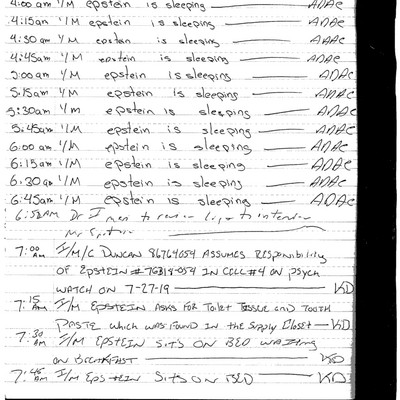 4:00 am I/M epstein is sleeping — ADAC
4:15am I/M epstein is sleeping — ADAC
4:30 am I/M epstein is sleeping — ADAC
4:45am I/M epstein is sleeping — ADAC
5:00am I/M epstein is sleeping — ADAC
5:15am I/M epstein is sleeping — ADAC
5:30am I/M epstein is sleeping — ADAC
5:45am I/M epstein is sleeping — ADAC
6:00 am I/M epstein is sleeping — ADAC
6:15am I/M epstein is sleeping — ADAC
6:30am I/M epstein is sleeping — ADAC
6:45am I/M epstein is sleeping — ADAC
6:50AM Dr to to
Mr
7:00 AM I/M/C DUNCAN 86764054 ASSUMES RESPONSIBILITY
OF EPSTEIN #76318-054 IN CELL #4 ON PSYCH
WATCH ON 7-27-19 — KD
7:15 AM I/M EPSTEIN ASKS FOR TOILET TISSUE AND TOOTH
PASTE which WAS FOUND IN the Supply Closet — KD
7:30 AM I/M EPSTEIN SITS ON BED WAITING
ON BREAKFAST — KD
7:45 AM I/M EPSTEIN SITS ON BED — KD